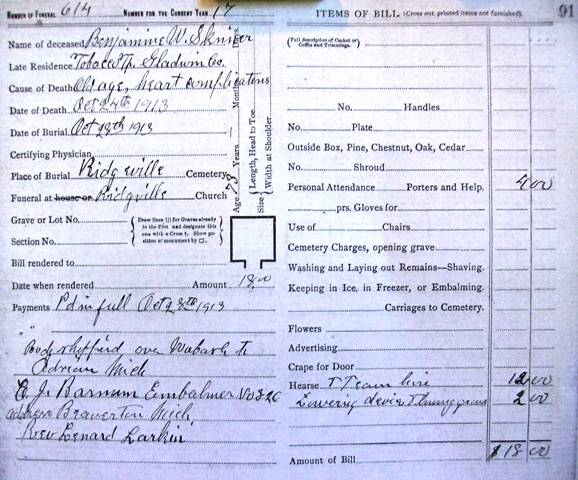 NUMBER OF FUNERAL 614 NUMBER FOR THE CURRENT YEAR 17
Name of deceased Benjamine W. Skniver
Late Residence Tobaco Tp. Gladwin Co.
Cause of Death Old age, heart complications
Date of Death Oct 24th 1913
Date of Burial Oct 28th 1913
Certifying Physician
Place of Burial Ridgeville Cemetery
Funeral at house or Ridgville Church
Grave or Lot No.
Section No.
Draw lines for Graves already in the Plot and designate this one with a Cross †. Show position of monument by □.
Bill rendered to
Date when rendered Amount 18.00
Payments Pd in full Oct 28th 1913
" 
Body shipped over Wabash to
Adrian Mich
C. J. Barnum Embalmer No 826
address Beaverton Mich,
Rev Lenard Larkin
Age 73 Years Months
Size Length, Head to Toe
Width at Shoulder
ITEMS OF BILL (Cross out printed items not furnished). 91
(Full description of Casket or Coffin and Trimmings.)
No. Handles
No. Plate
Outside Box, Pine, Chestnut, Oak, Cedar
No. Shroud
Personal Attendance Porters and Help. 4 00
prs. Gloves for
Use of Chairs
Cemetery Charges, opening grave
Washing and Laying out Remains—Shaving.
Keeping in Ice, in Freezer, or Embalming.
Carriages to Cemetery.
Flowers
Advertising
Crape for Door
Hearse & Team hire 12 00
Lowering device & lining grave 2 00
Amount of Bill $18 00